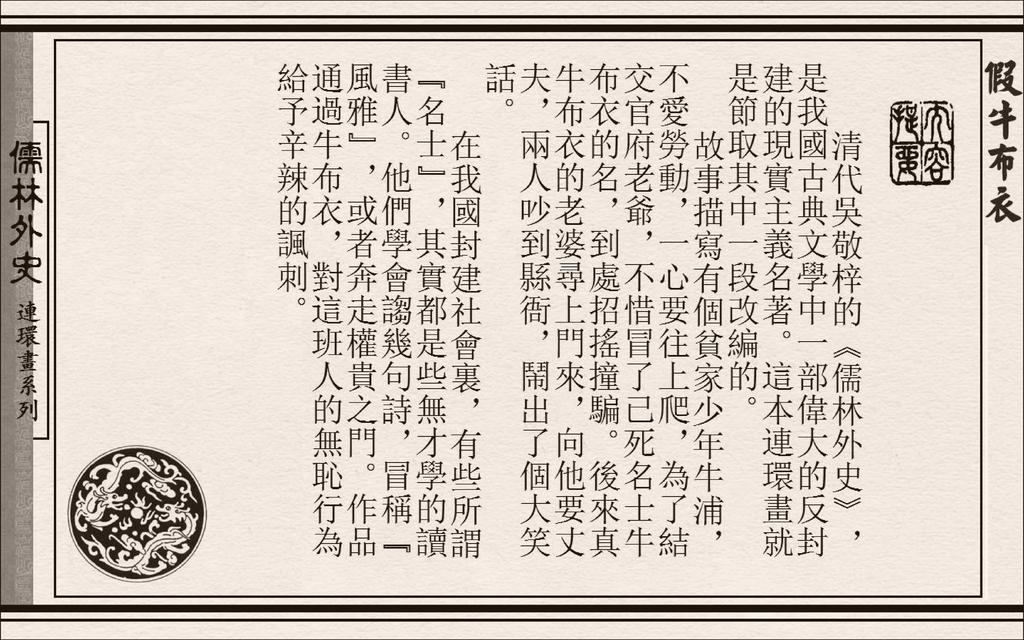 假牛布衣
內容
提要
清代吳敬梓的《儒林外史》，
是我國古典文學中一部偉大的反封
建的現實主義名著。這本連環畫就
是節取其中一段改編的。
故事描寫有個貧家少年牛浦，
不愛勞動，一心要往上爬，為了結
交官府老爺，不惜冒了已死名士牛
布衣的名，到處招搖撞騙。後來真
牛布衣的老婆尋上門來，向他要丈
夫，兩人吵到縣衙，鬧出了個大笑
話。
在我國封建社會裏，有些所謂
『名士』，其實都是些無才學的讀
書人。他們學會謅幾句詩，冒稱『
風雅』，或者奔走權貴之門。作品
通過牛布衣，對這班人的無恥行為
給予辛辣的諷刺。
儒林外史 連環畫系列